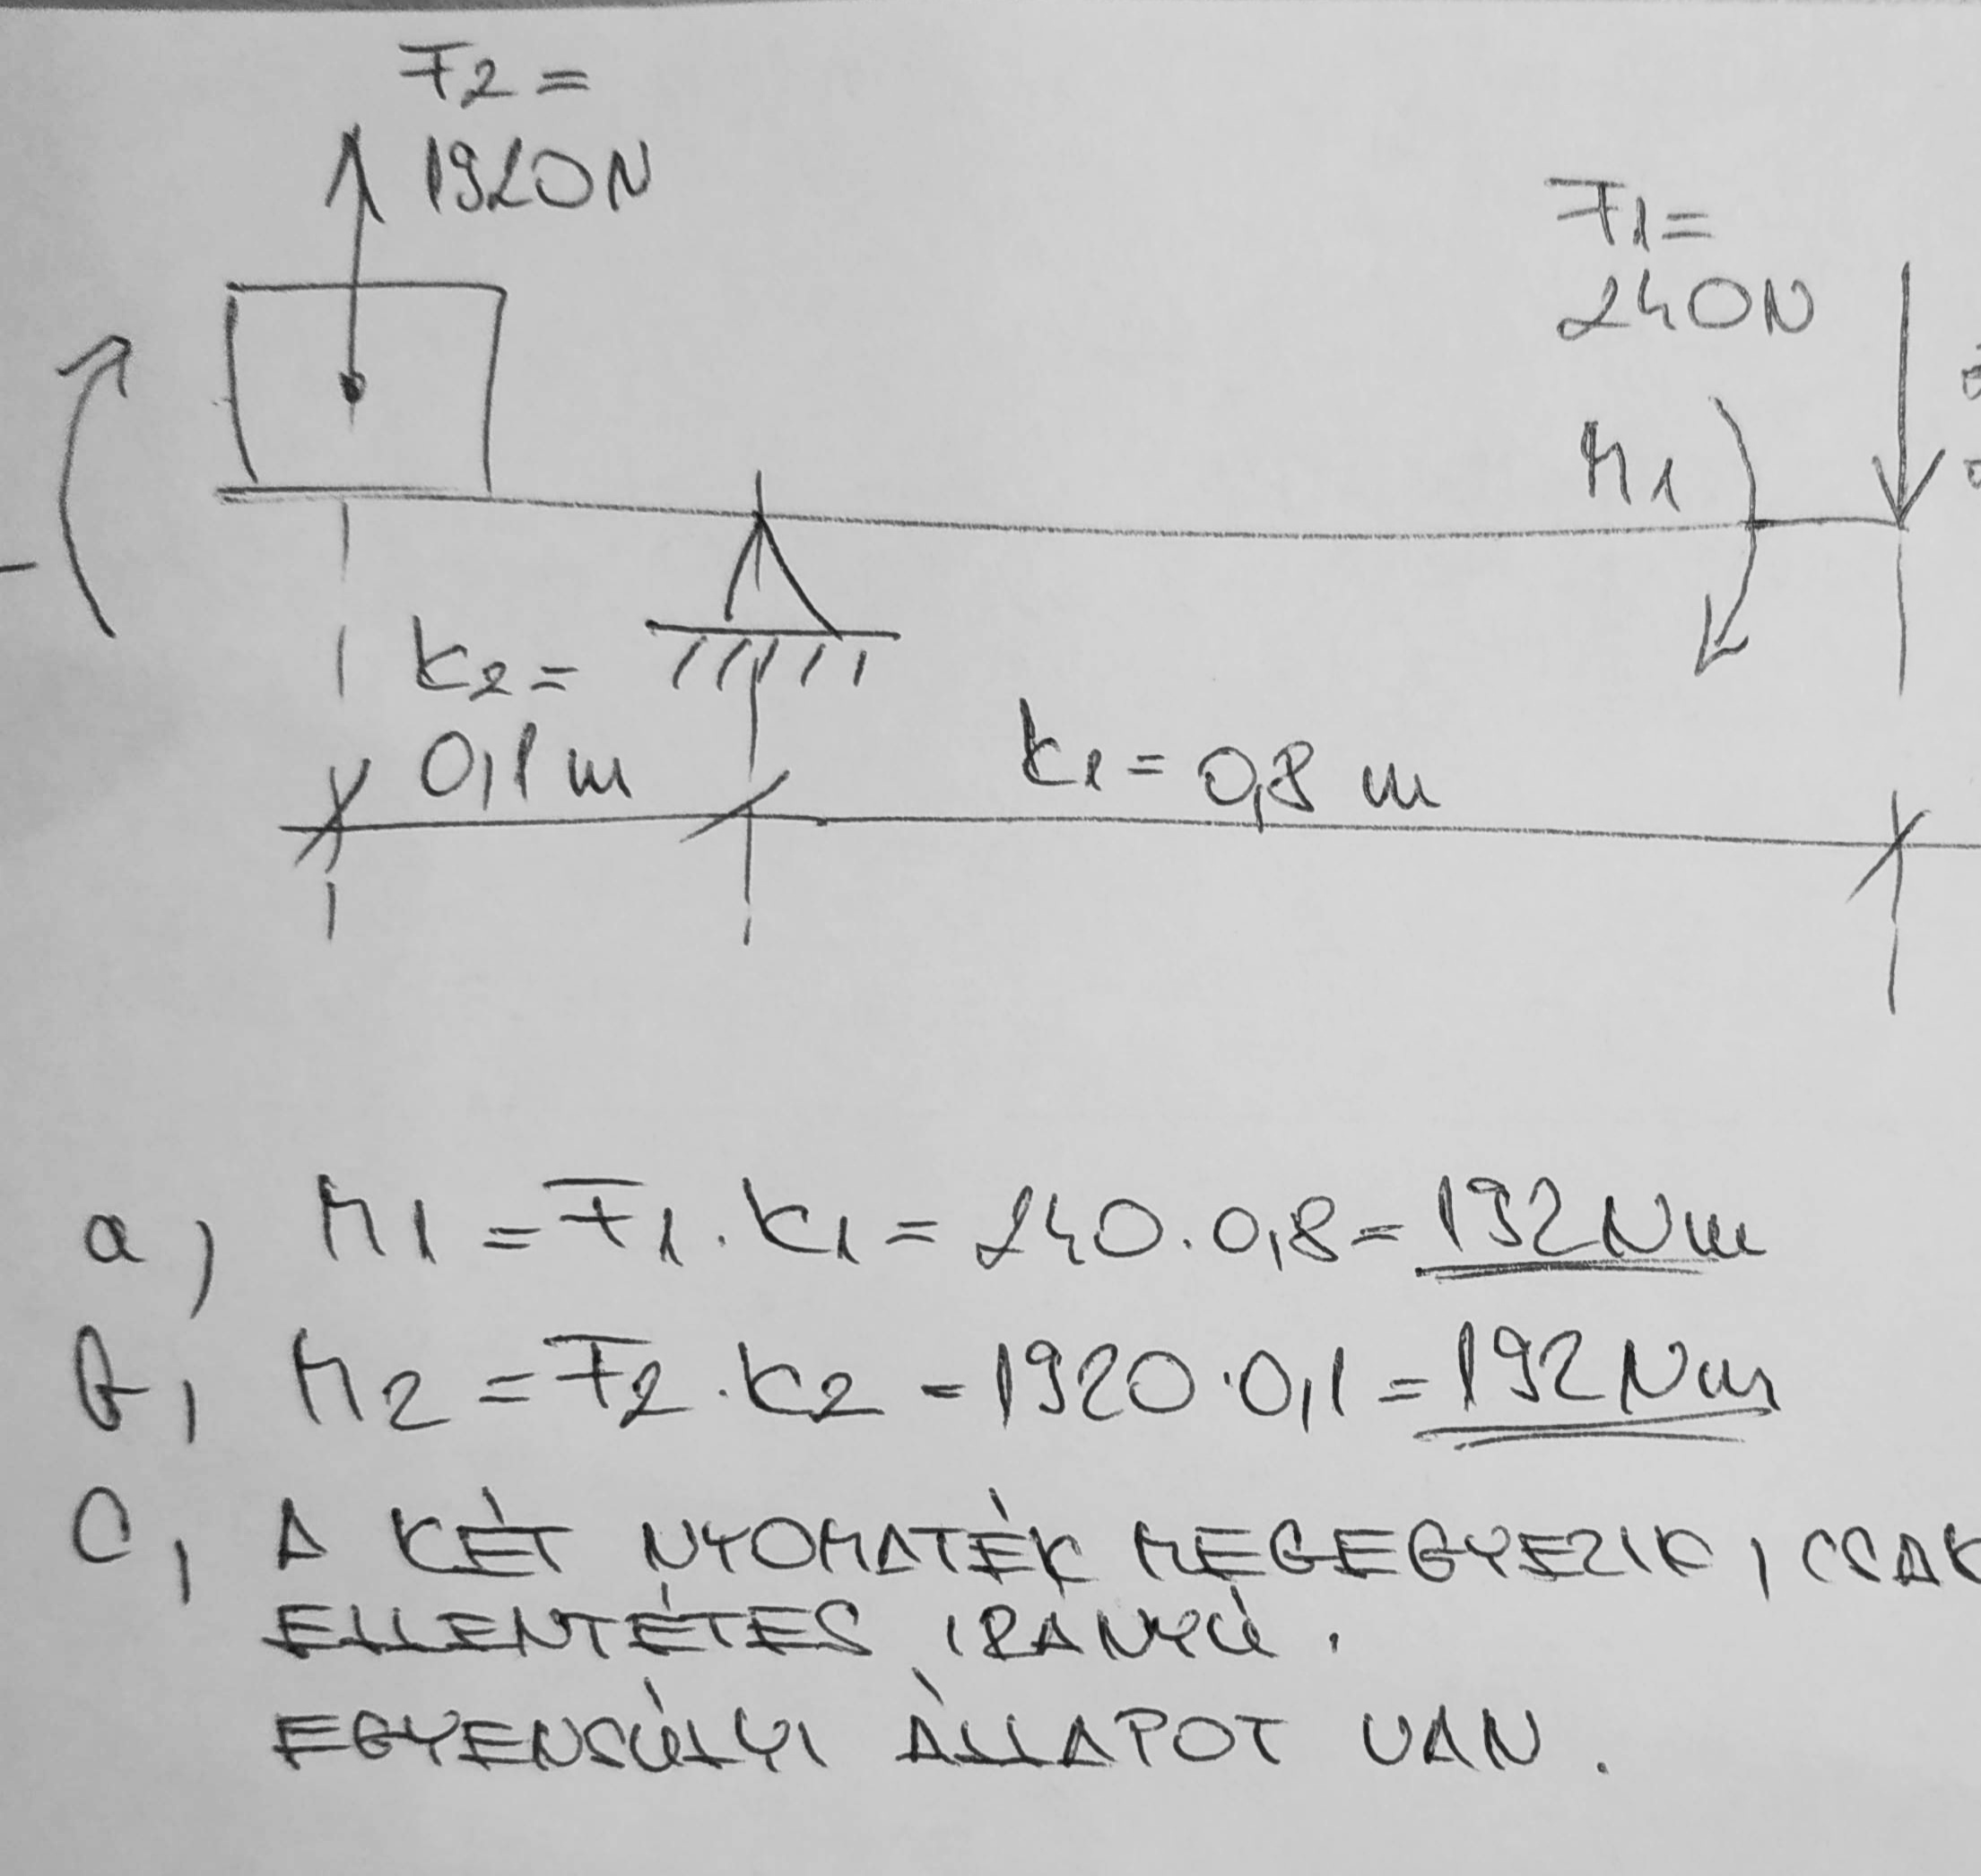 F2 =
1920N
F1 =
240N
M1
k2 =
0,1 m
k1 = 0,8 m
a) M1 = F1 . k1 = 240 . 0,8 = 192 Nm
b, M2 = F2 . k2 - 1920 . 0,1 = 192 Nm
C, A KÉT NYOMATÉK MEGEGYEZIK, CSAK
ELLENTÉTES IRÁNYÚ.
EGYENSÚLYI ÁLLAPOT VAN.